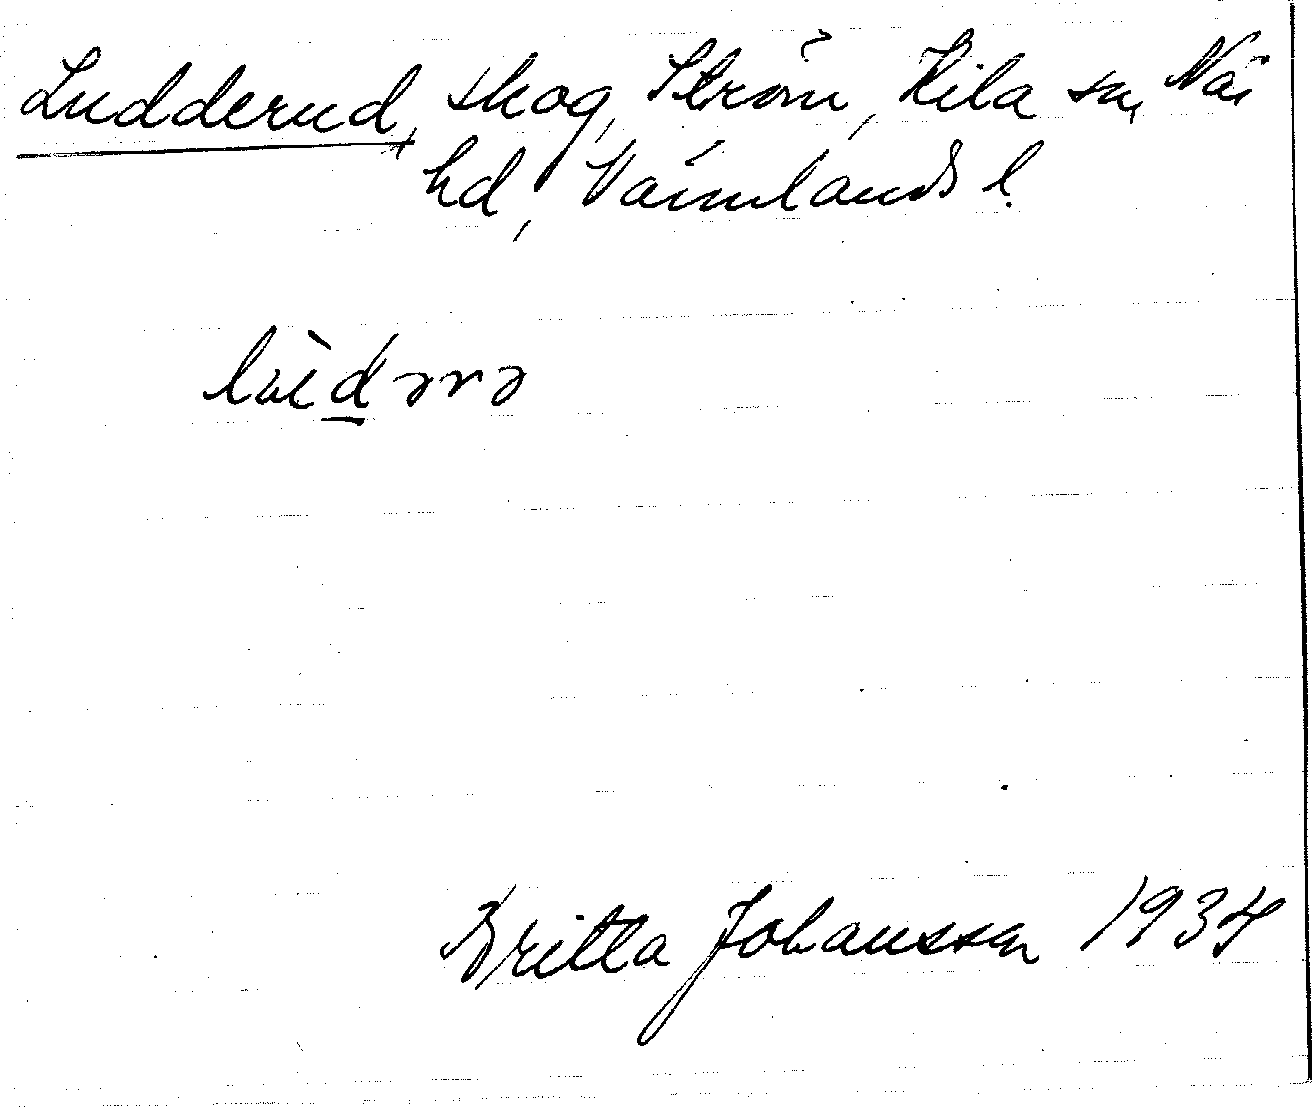 Ludderud, skog, Ström, Kila sn, Näs
hd, Värmlands l.
lùdərə
Britta Johansson 1934